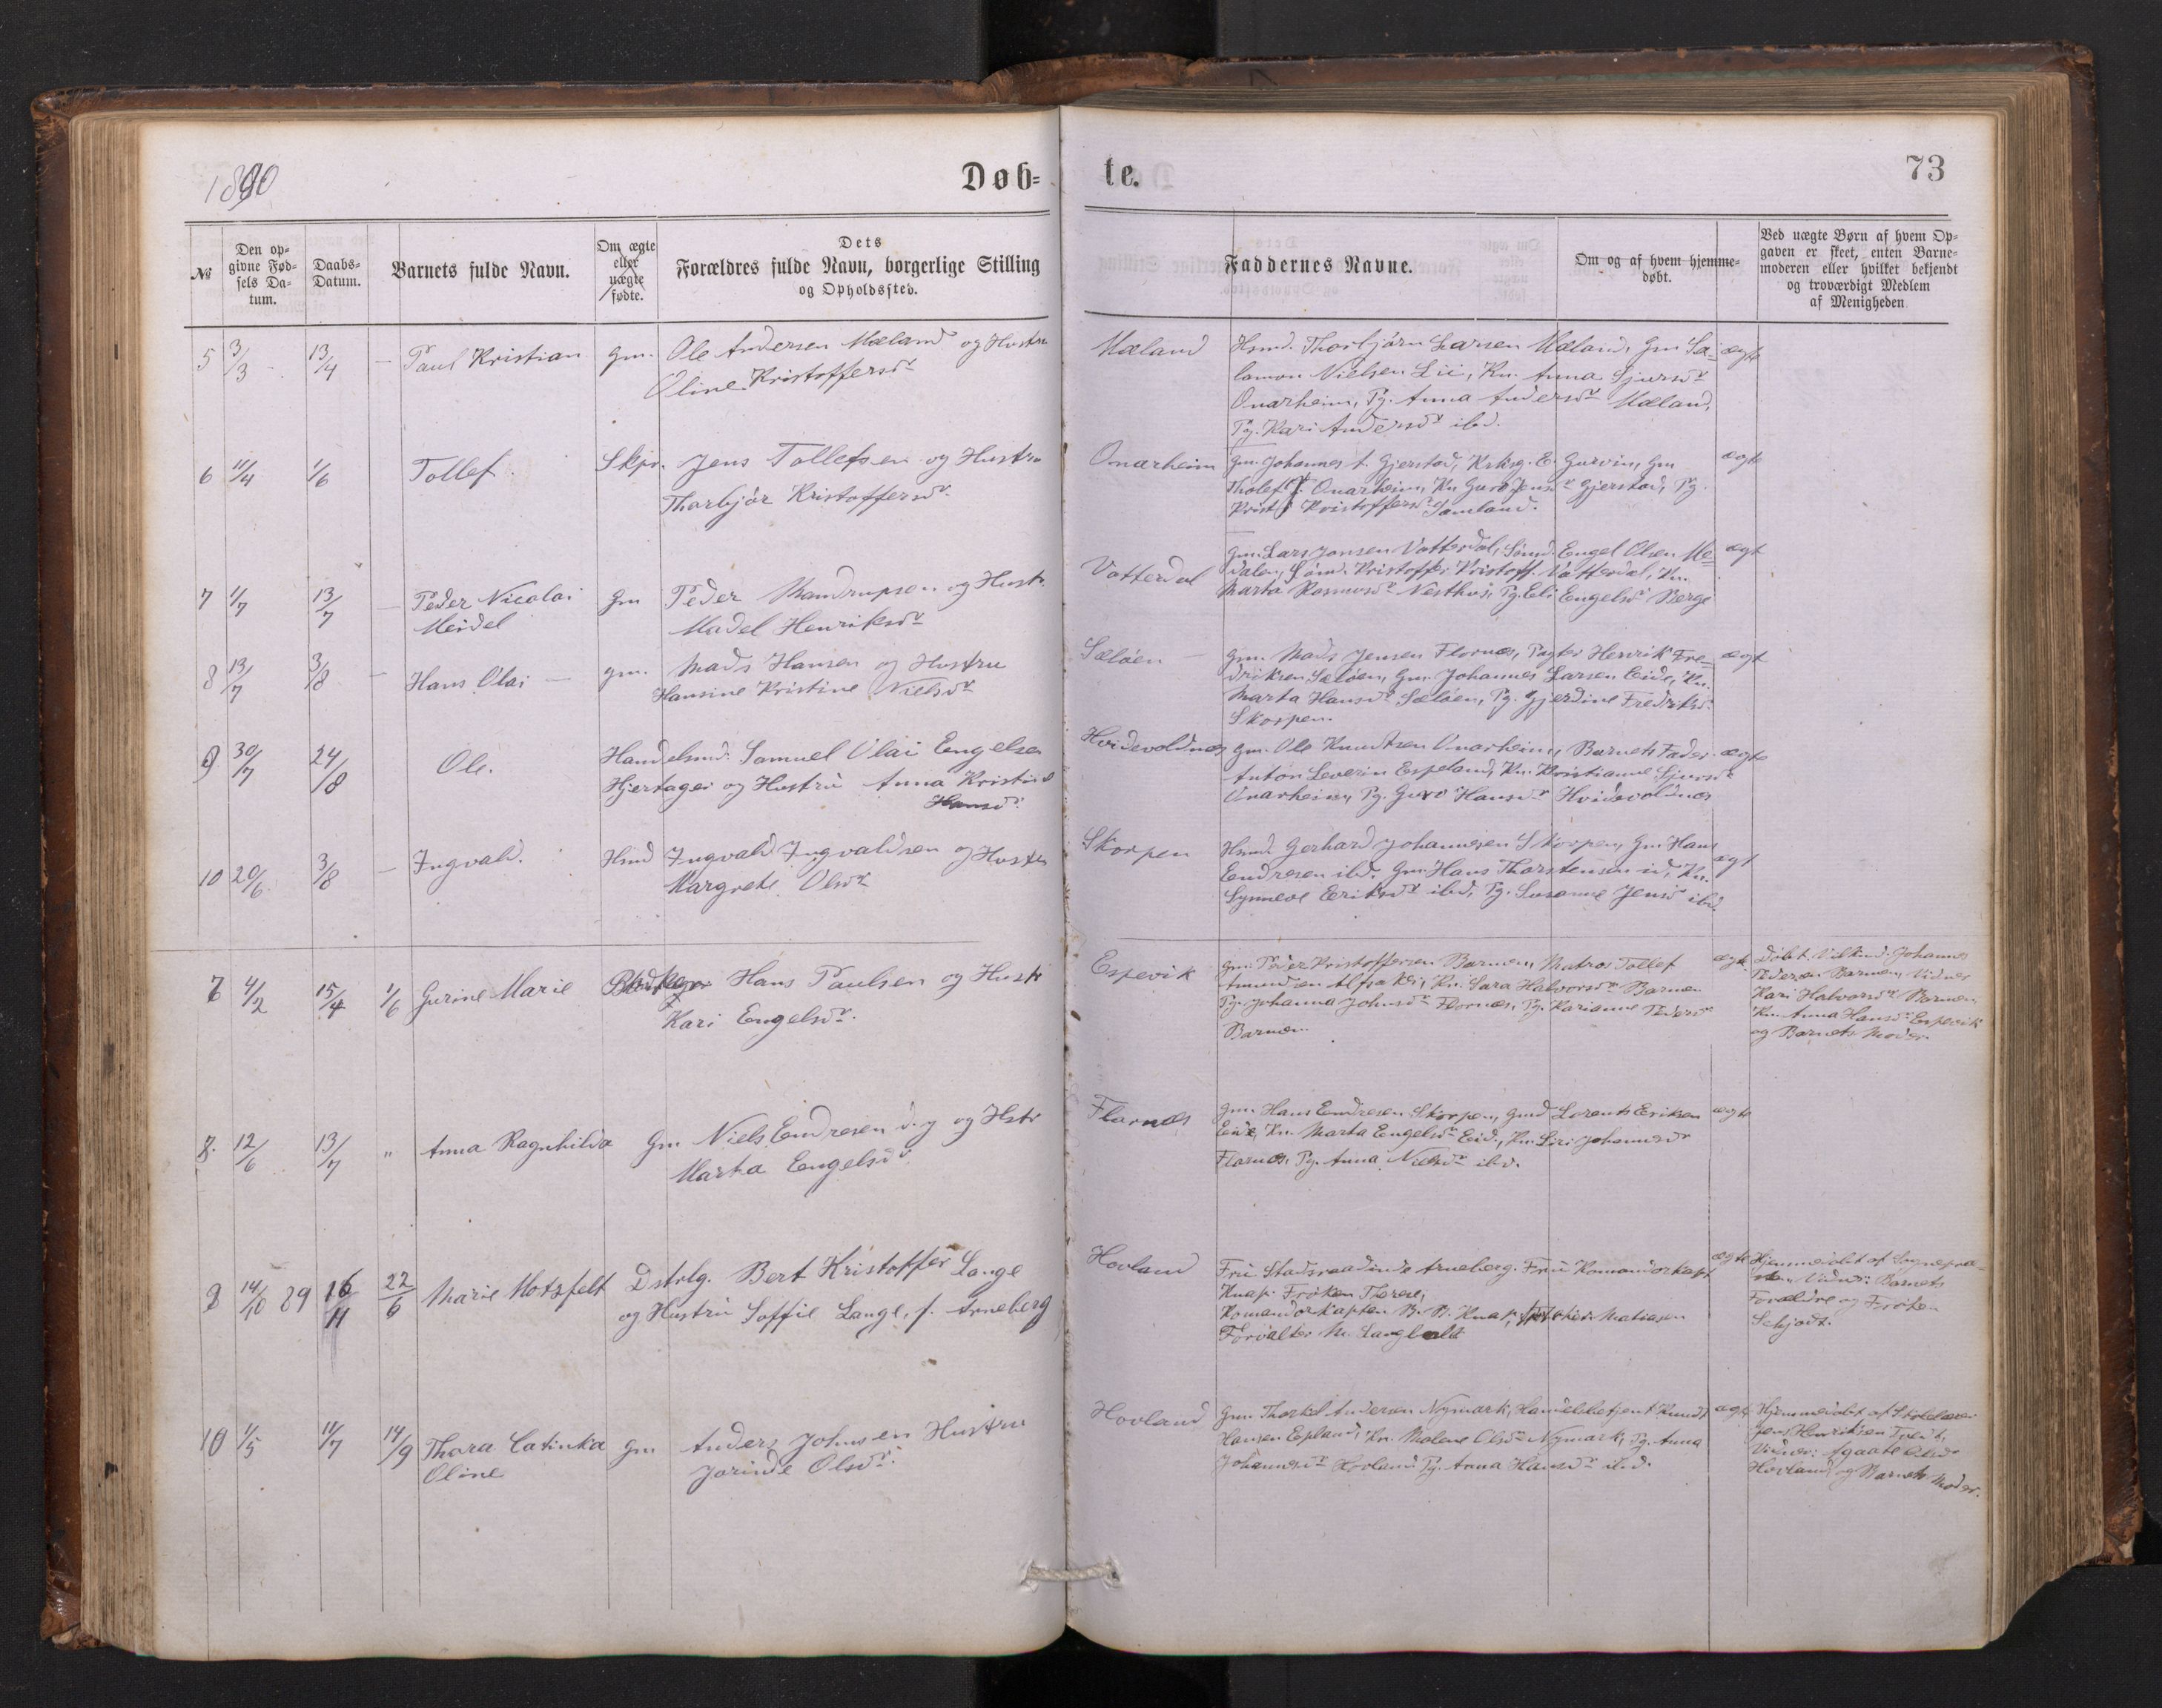 1890
Døb=
te.
73
№
Den op=
givne Fød=
sels Da=
tum.
Daabs=
Datum.
Barnets fulde Navn.
Om ægte
eller
uægte
fødte.
Dets
Forældres fulde Navn, borgerlige Stilling
og Opholdssted.
Faddernes Navne.
Om og af hvem hjemme=
døbt.
Ved uægte Børn af hvem Op=
gaven er skeet, enten Barne=
moderen eller hvilket bekjendt
og troværdigt Medlem
af Menigheden
5 3/3 13/4 — Paul Kristian gm. Ole Andersen Mæland og Hustru
Oline Kristoffersdr
Mæland
Hsmd. Thorbjørn Larsen Mæland, Gm Sa= ægte
lamon Nielsen Lii, Kn. Anna Sjursdr
Onarheim, Pg. Anna Andersdr Mæland,
Pg. Kari Andersdr ibd.
6 11/4 1/6 Tollef. Skpr. Jens Tollefsen og Hustru
Thorbjør Kristoffersdr.
Onarheim
Gm. Johannes A. Gjerstad, Krksg. E. Gurvin, Gm ægte
Tholef J. Onarheim, Kn Guro Jensdr Gjerstad, Pg.
Kristi Kristoffersdr Samland.
7 1/7 13/7 — Peder Nicolai gm Peder Mandrupsen og Hustr.
Meidel Madel Henriksdr
Vatterdal
gm. Lars Jansen Vatterdal, Sømd. Engel Olsen Me= ægt
dalen, Sømd. Kristoffer Kristoff. Vatterdal, Kn.
Marta Rasmusdr Nesthus, Pg. Eli Engelsdr Berge
8 13/7 3/8 — Hans Olai — gm. Mads Hansen og Hustru
Hansine Kristine Nielsdr
Sæløen —
gm. Mads Jensen Flornes, Pagter Henrik Fre= ægt
driksen Sæløen, Gm. Johannes Larsen Eide, Kn.
Marta Hansdr Sæløen, Pg. Gjerdine Fredriksdr
Skorpen.
9 30/7 24/8 Ole. Handelsmd. Samuel Olai Engelsen
Hjertager og Hustru Anna Kristine
Hansdr
Hvidevoldnæs
gm. Ole Knudtsen Onarheim, Barnets Fader ægte
Anton Severin Espeland, Kn. Kristianne Sjursdr
Onarheim, Pg. Guro Hansdr Hvidevoldnæs
10 20/6 3/8 — Ingvald. Hsmd Ingvald Ingvaldsen og Hustru
Margrete Olsdr
Skorpen
Hsmd. Gerhard Johannesen Skorpen, Gm. Hans ægt
Endresen ibd. Gm. Hans Thorstensen id, Kn.
Synneve Eriksdr ibd, Pg. Susanne Jensdr ibd.
7 4/2 15/4 1/6 Gurine Marie Hans Paulsen og Hustr
Kari Engelsdr.
Espevik
gm. Peder Kristoffersen Barmen, Matros Tollef ægte
Kn. Sara Halvorsdr Barmen
Pg. Johanna Johnsdr Flornæs, Pg. Karianne Pedersdr
Barmen
Johannes
Pedersen Barmen, Vidner
Kari Halvorsdr Barmen,
Kn. Anna Hansdr Espevik
og Barnets Moder.
8. 12/6 13/7 „ Anna Ragnhilda Gm Niels Endresen d.y og Hstr
Marta Engelsdr
Flornæs
gm. Hans Endresen Skorpen, gmd Lorents Eriksen ægte
Eide, Kn. Marta Engelsdr Eid, Kn. Siri Johannesdr
Flornæs, Pg. Anna Nielsdr ibd.
9 14/10 89 16/11 22/6 Marie Motzfelt Dstrlg. Bert Kristoffer Lange
og Hustru Soffie Lange, f. Arneberg
Hovland
Fru Stadsraadinde Arneberg. Fru Komandørkapt ægte
Knap. Frøken Therese,
Komandørkapten B. B. Knap, Matiasen
Forvalter M. Langballe
Hjemmedøbt af Sognepræ
sten Vidn: Barnets
Forældre og Frøken
Schjødt.
10 1/5 11/7 14/9 Thora Catinka gm Anders Johnsen Hustru
Oline Jorinde Olsdr.
Hovland
Gm. Thorkel Andersen Nymark, Handelsbetjent Knudt ægte
Hansen Espland, Kn. Malene Olsdr Nymark, Pg. Anna
Johannesdr Hovland Pg. Anna Hansdr ibd.
Hjemmedøbt af Skolelærer
Jens Henriksen Tveit,
Vidner: Agaate Olsdr
Hovland og Barnets Moder.